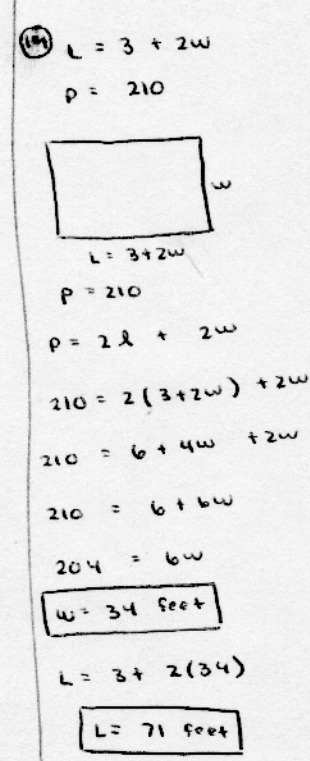 L = 3 + 2w
P = 210
w
L = 3+2w
P = 210
P = 2l + 2w
210 = 2(3+2w) + 2w
210 = 6 + 4w + 2w
210 = 6 + 6w
204 = 6w
w = 34 feet
L = 3 + 2(34)
L = 71 feet